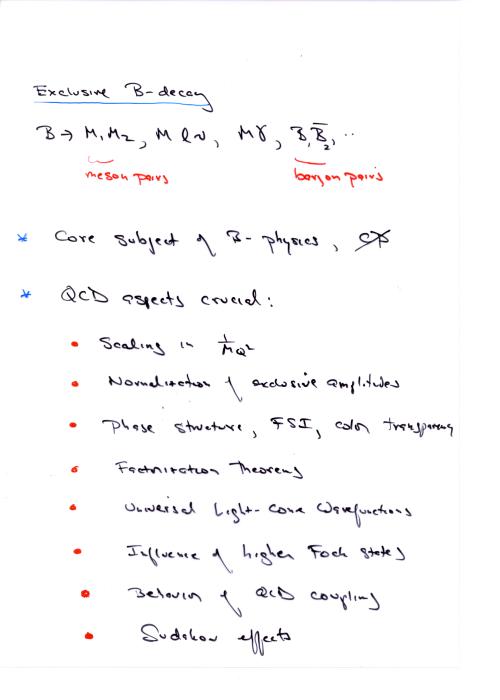 Exclusive B-decay
B → M₁M₂, Mℓν, Mγ, B₁B̄₂, ..
meson pairs baryon pairs
* Core subject of B-physics, CP
* QCD aspects crucial:
• Scaling in 1/M_Q²
• Normalization of exclusive amplitudes
• Phase structure, FSI, color transparency
• Factorization Theorems
• Universal Light-Cone Wavefunctions
• Influence of higher Fock states
• Behavior of QCD coupling
• Sudakov effects